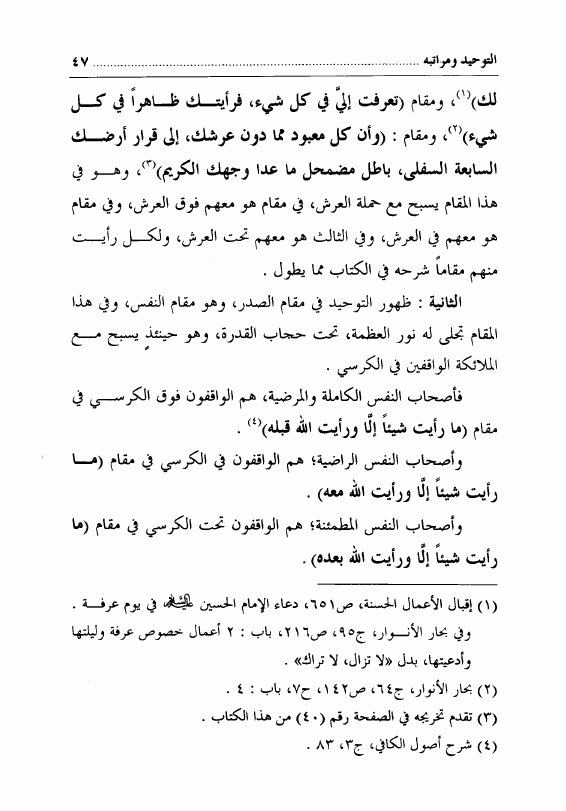 التوحيد ومراتبه ........................................................................ ٤٧
لك)(١)، ومقام (تعرفت إليَّ في كل شيء، فرأيتـك ظـاهراً في كـل
شيء)(٢)، ومقام : (وأن كل معبود مما دون عرشك، إلى قرار أرضـك
السابعة السفلى، باطل مضمحل ما عدا وجهك الكريم)(٣)، وهـو في
هذا المقام يسبح مع حملة العرش، في مقام هو معهم فوق العرش، وفي مقام
هو معهم في العرش، وفي الثالث هو معهم تحت العرش، ولكـل رأيـت
منهم مقاماً شرحه في الكتاب مما يطول .
الثانية : ظهور التوحيد في مقام الصدر، وهو مقام النفس، وفي هذا
المقام تجلى له نور العظمة، تحت حجاب القدرة، وهو حينئذٍ يسبح مـع
الملائكة الواقفين في الكرسي .
فأصحاب النفس الكاملة والمرضية، هم الواقفون فوق الكرسـي في
مقام (ما رأيت شيئاً إلَّا ورأيت الله قبله)(٤) .
وأصحاب النفس الراضية؛ هم الواقفون في الكرسي في مقام (مـا
رأيت شيئاً إلَّا ورأيت الله معه) .
وأصحاب النفس المطمئنة؛ هم الواقفون تحت الكرسي في مقام (ما
رأيت شيئاً إلَّا ورأيت الله بعده) .
(١) إقبال الأعمال الحسنة، ص٦٥١، دعاء الإمام الحسين عليه السلام، في يوم عرفـة .
وفي بحار الأنـوار، ج٩٥، ص٢١٦، باب : ٢ أعمال خصوص عرفة وليلتها
وأدعيتها، بدل «لا تزال، لا تراك» .
(٢) بحار الأنوار، ج٦٤، ص١٤٢، ح٧، باب : ٤ .
(٣) تقدم تخريجه في الصفحة رقم (٤٠) من هذا الكتاب .
(٤) شرح أصول الكافي، ج٣، ٨٣ .